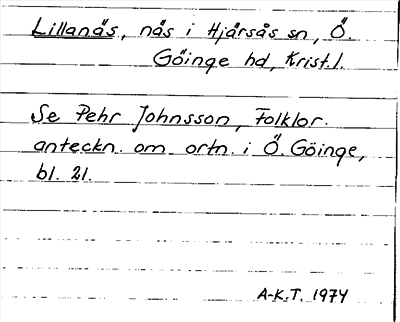 Lillanäs, näs i Hjärsås sn, Ö.
Göinge hd, Krist.l.
Se Pehr Johnsson, Folklor.
anteckn. om ortn. i Ö. Göinge,
bl. 21.
A-K.T. 1974